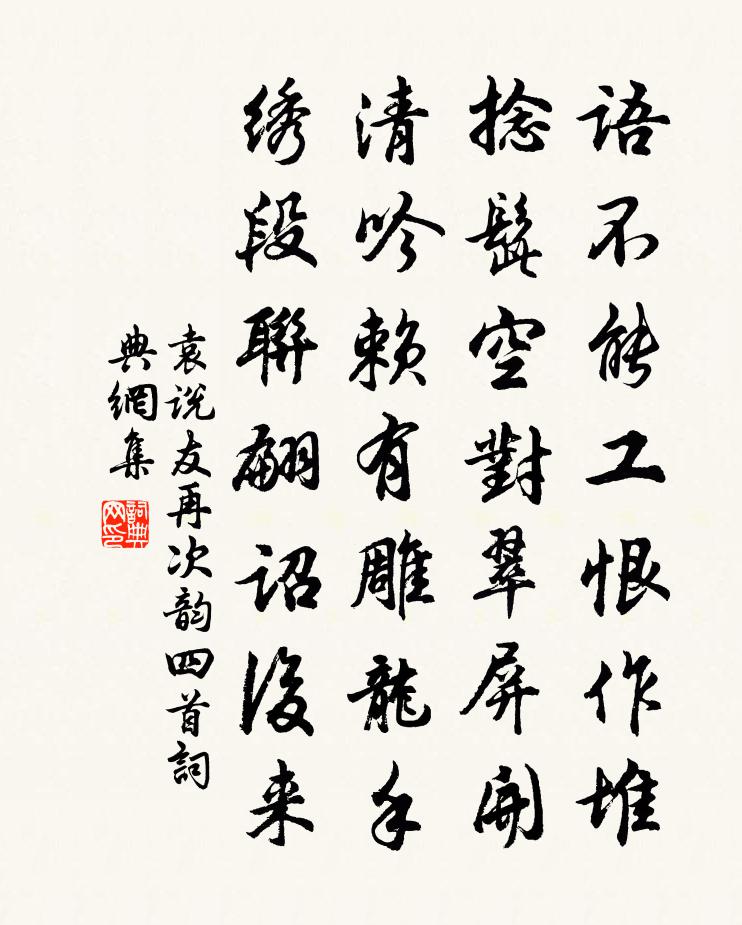 语不能工恨作堆
捻髭空對翠屏開
清吟赖有雕龍手
绣段聯翩诏後来
袁说友再次韵四首詞
典網集
詞典
网印